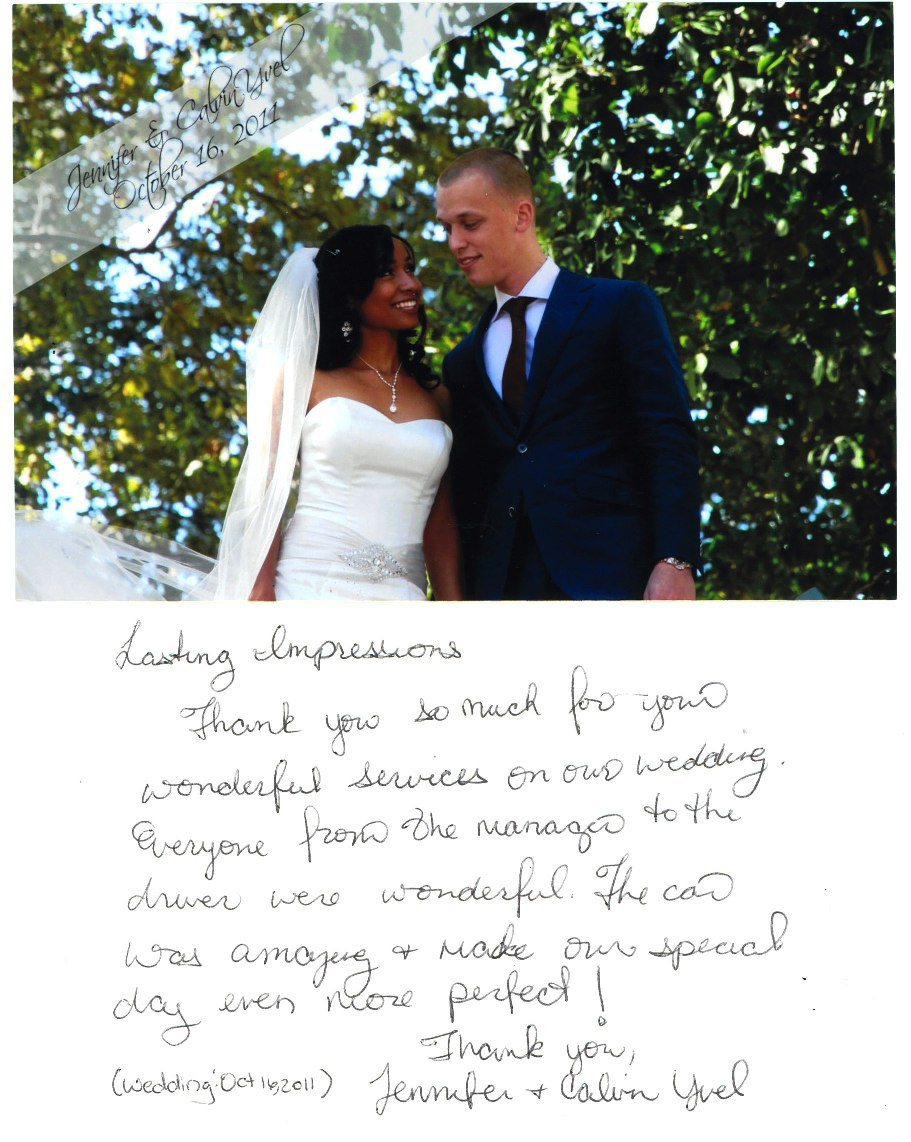 Jennifer & Calvin Yvel
October 16, 2011
Lasting Impressions
Thank you so much for your
wonderful services on our wedding.
Everyone from the manager to the
driver were wonderful. The car
was amazing + made our special
day even more perfect!
Thank you,
(Wedding: Oct 16, 2011)
Jennifer + Calvin Yvel